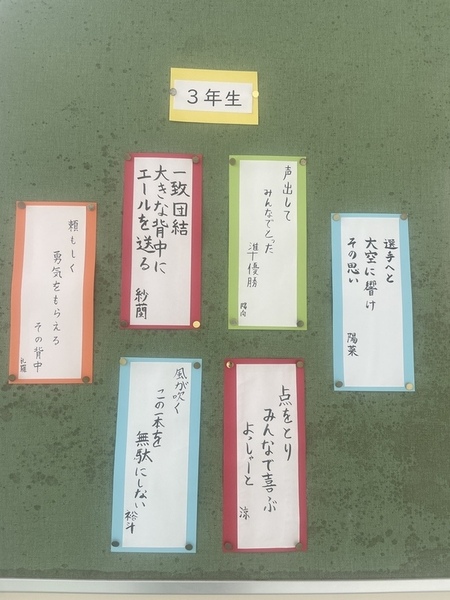 3年生
選手へと
大空に響け
その思い
陽菜
声出して
みんなでとった
準優勝
陽向
一致団結
大きな背中に
エールを送る
紗蘭
頼もしく
勇気をもらえる
その背中
点をとり
みんなで喜ぶ
よっしゃーと
涼
風が吹く
この一本を
無駄にしない
裕斗